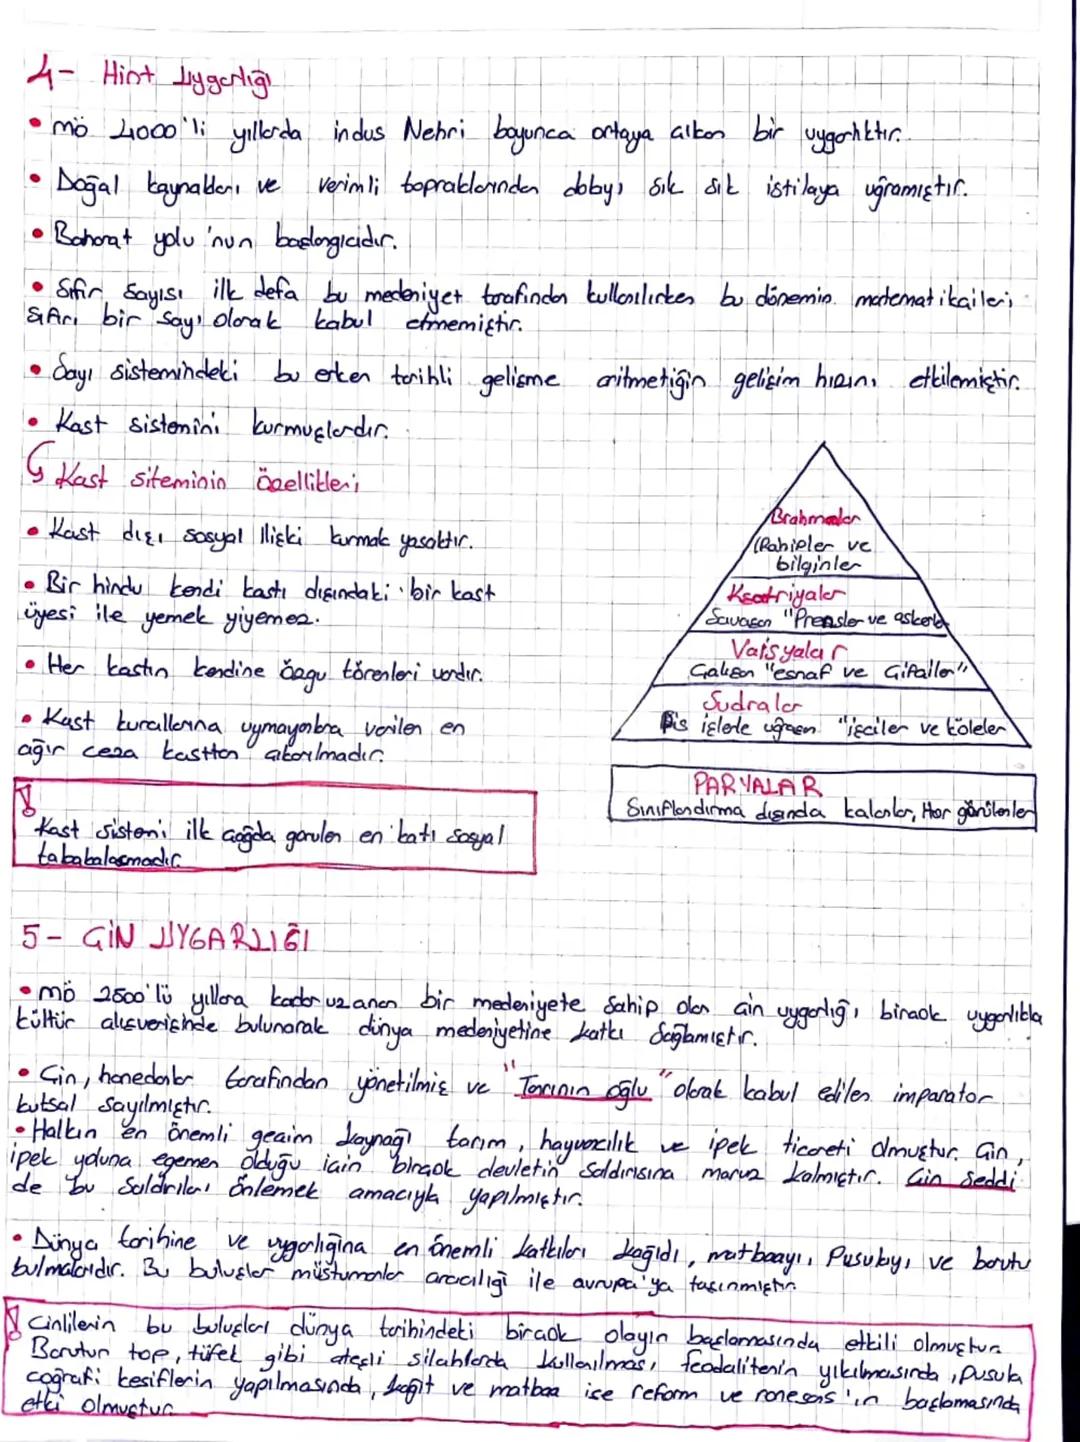 4- Hint Uygarlığı
• mö 4000'li yıllarda indus Nehri boyunca ortaya çıkan bir uygarlıktır.
• Doğal kaynakları ve verimli topraklarından dolayı sık sık istilaya uğramıştır.
• Baharat yolu'nun başlangıcıdır.
• Sıfır Sayısı ilk defa bu medeniyet tarafından kullanılırken bu dönemin matematikçileri
sıfırı bir sayı olarak kabul etmemiştir.
• Sayı sistemindeki bu erken tarihli gelişme aritmetiğin gelişim hızını etkilemiştir.
• Kast sistemini kurmuşlardır.
Kast siteminin özellikleri
• Kast dışı sosyal ilişki kurmak yasaktır.
• Bir hindu kendi kastı dışındaki bir kast
üyesi ile yemek yiyemez.
• Her kastın kendine özgü törenleri vardır.
• Kast kurallarına uymayanlara verilen en
ağır ceza kasttan çıkarılmadır.
! Kast sistemi ilk çağda görülen en katı sosyal
tabakalaşmadır.
Brahmanlar
(Rahipler ve
bilginler
Ksatriyalar
Savaşan "Prensler ve askerler
Vaisyalar
Çalışan "esnaf ve Çiftçiler"
Sudralar
Pis işlerle uğraşan "işçiler ve köleler
PARYALAR
Sınıflandırma dışında kalanlar, Hor görülenler
5- ÇİN UYGARLIĞI
• mö 2500'lü yıllara kadar uzanan bir medeniyete Sahip olan Çin uygarlığı birçok uygarlıkla
kültür alışverişinde bulunarak dünya medeniyetine katkı Sağlamıştır.
• Çin, hanedanlar tarafından yönetilmiş ve "Tanrının oğlu" olarak kabul edilen imparator
kutsal sayılmıştır.
• Halkın en önemli geçim kaynağı tarım, hayvancılık ve ipek ticareti olmuştur. Çin,
ipek yoluna egemen olduğu için birçok devletin saldırısına maruz kalmıştır. Çin Seddi
de bu Saldırıları önlemek amacıyla yapılmıştır.
• Dünya tarihine ve uygarlığına en önemli katkıları kağıdı, matbaayı, Pusulayı ve barutu
bulmalarıdır. Bu buluşlar müslümanlar aracılığı ile avrupa'ya taşınmıştır.
! Çinlilerin bu buluşları dünya tarihindeki birçok olayın başlamasında etkili olmuştur.
Barutun top, tüfek gibi ateşli silahlarda kullanılması, feodalitenin yıkılmasında, pusula
coğrafi keşiflerin yapılmasında, kağıt ve matbaa ise reform ve rönesans'ın başlamasında
etki olmuştur.